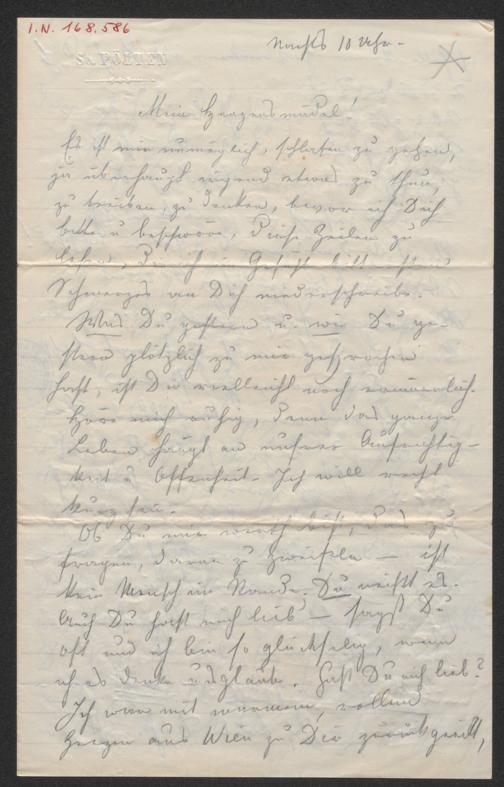 I.N. 168.586
ST. PÖLTEN
Nachts 10 Uhr.-
Mein Herzensmädel!
Es ist mir unmöglich, schlafen zu gehen,
ja überhaupt irgend etwas zu thun,
zu denken, bevor ich Dich
bitte u beschwöre, diese Zeilen zu
lesen, die ich im Gefühl bittersten
Schmerzes an Dich niederschreibe.
Was Du gestern u. wie Du ge-
stern plötzlich zu mir gesprochen
hast, ist Dir vielleicht noch erinnerlich.
Höre mich ruhig, denn das ganze
Leben hängt an unserer Aufrichtig-
keit u Offenheit. Ich will recht
kurz sein.
Ob Du mir werth bist, das zu
fragen, daran zu zweifeln — ist
kein Mensch im Stande. Du weißt es.
Auch Du hast mich lieb — sagst Du
oft und ich bin so glückselig, wenn
ich es denke u glaube. Hast Du mich lieb?
Ich war mit warmem, vollem
Herzen aus Wien zu Dir zurückgeeilt,